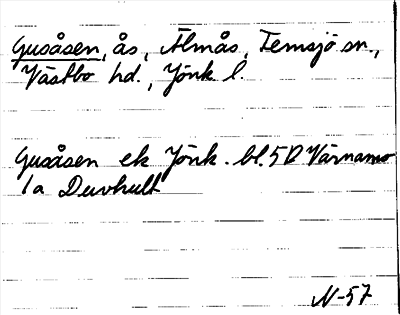 Gusåsen, ås, Älmås, Femsjö sn.,
Västbo hd., Jönk l.
Gusåsen ek Jönk. bl. 5 D Värnamo
1a Duvhult
N-57